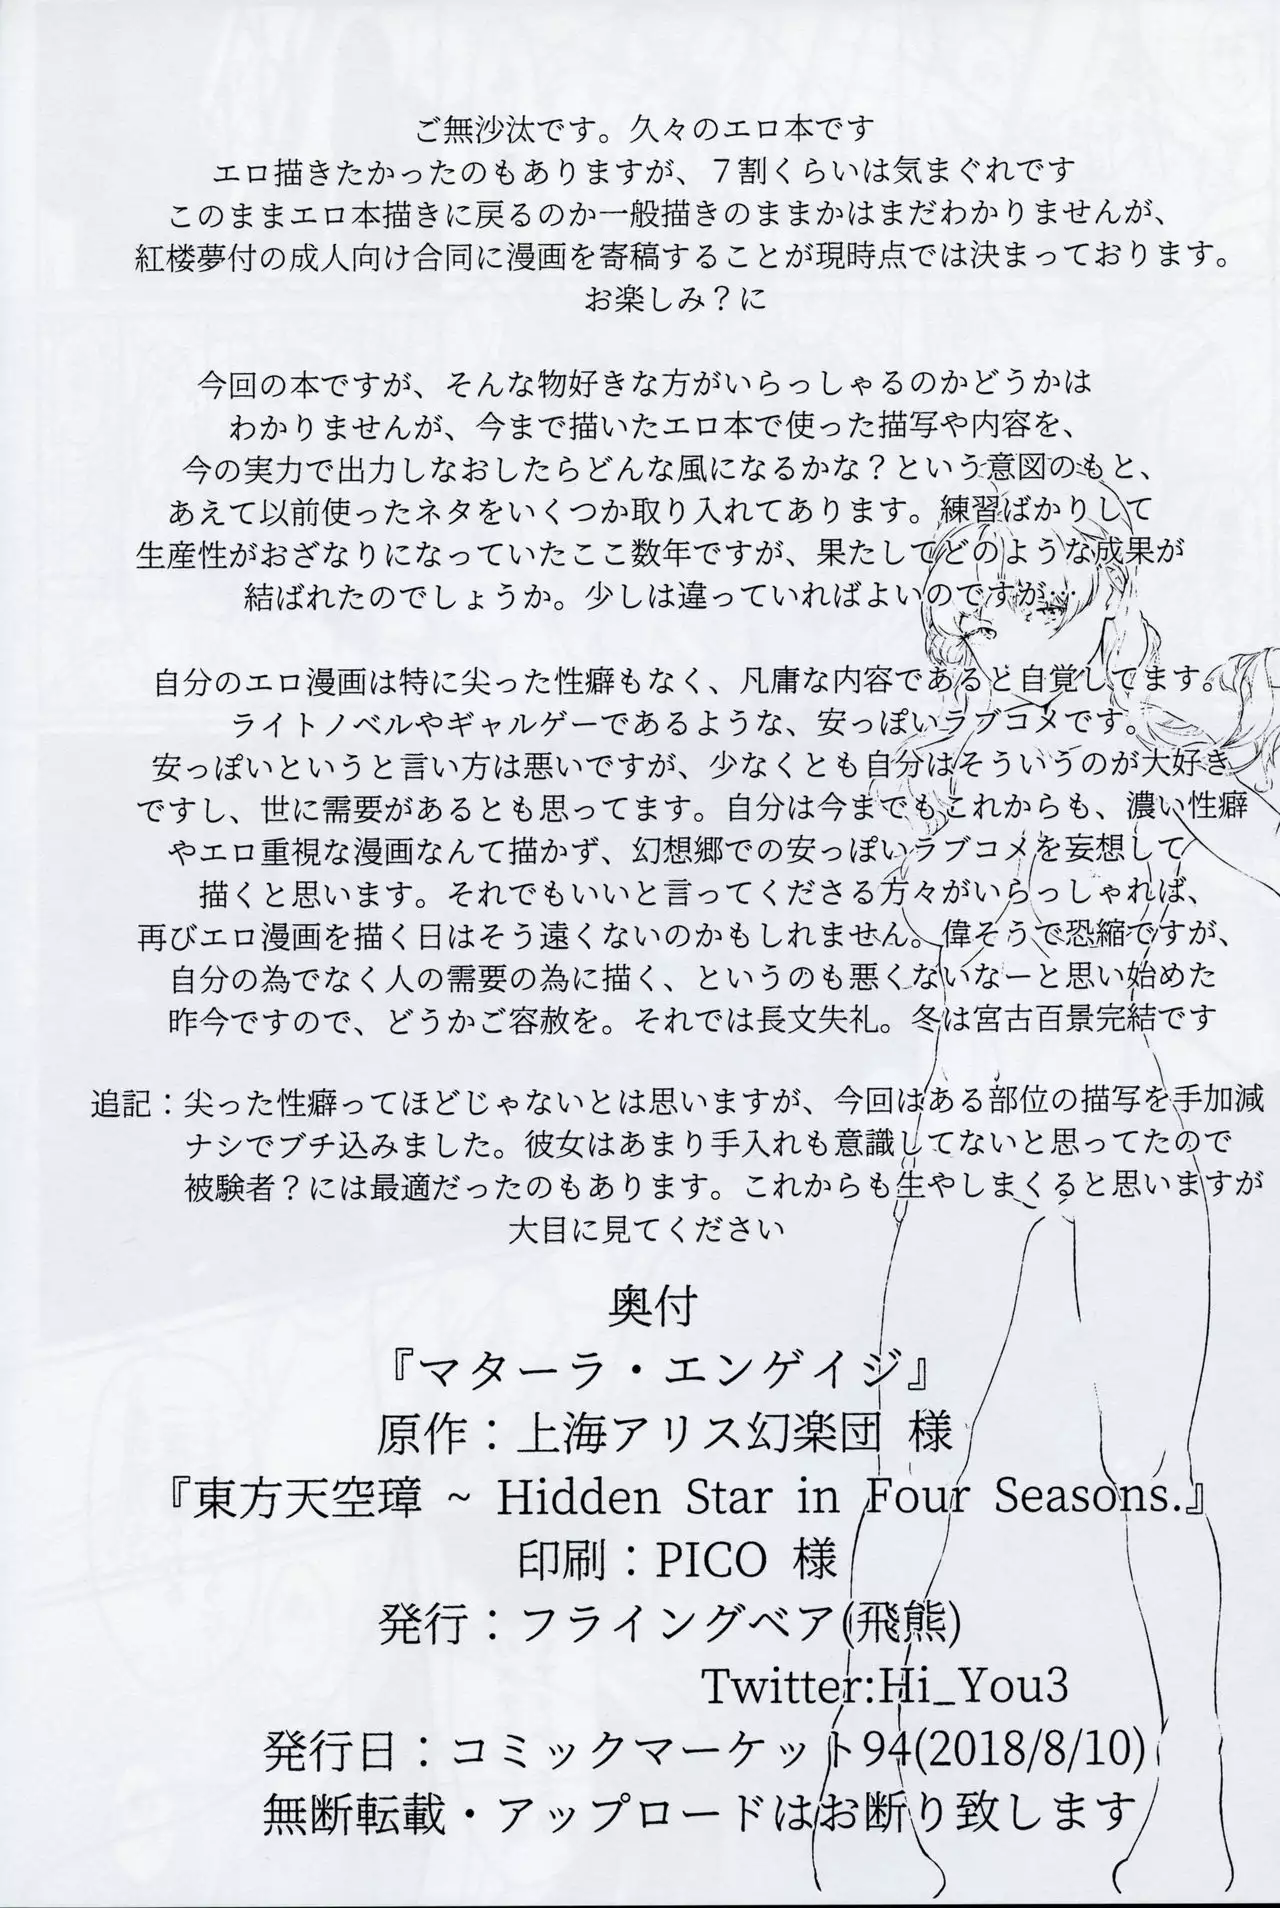 ご無沙汰です。久々のエロ本です
エロ描きたかったのもありますが、７割くらいは気まぐれです
このままエロ本描きに戻るのか一般描きのままかはまだわかりませんが、
紅楼夢付の成人向け合同に漫画を寄稿することが現時点では決まっております。
お楽しみ？に
今回の本ですが、そんな物好きな方がいらっしゃるのかどうかは
わかりませんが、今まで描いたエロ本で使った描写や内容を、
今の実力で出力しなおしたらどんな風になるかな？という意図のもと、
あえて以前使ったネタをいくつか取り入れてあります。練習ばかりして
生産性がおざなりになっていたここ数年ですが、果たしてどのような成果が
結ばれたのでしょうか。少しは違っていればよいのですが…
自分のエロ漫画は特に尖った性癖もなく、凡庸な内容であると自覚してます。
ライトノベルやギャルゲーであるような、安っぽいラブコメです。
安っぽいというと言い方は悪いですが、少なくとも自分はそういうのが大好き
ですし、世に需要があるとも思ってます。自分は今までもこれからも、濃い性癖
やエロ重視な漫画なんて描かず、幻想郷での安っぽいラブコメを妄想して
描くと思います。それでもいいと言ってくださる方々がいらっしゃれば、
再びエロ漫画を描く日はそう遠くないのかもしれません。偉そうで恐縮ですが、
自分の為でなく人の需要の為に描く、というのも悪くないなーと思い始めた
昨今ですので、どうかご容赦を。それでは長文失礼。冬は宮古百景完結です
追記：尖った性癖ってほどじゃないとは思いますが、今回はある部位の描写を手加減
ナシでブチ込みました。彼女はあまり手入れも意識してないと思ってたので
被験者？には最適だったのもあります。これからも生やしまくると思いますが
大目に見てください
奥付
『マターラ・エンゲイジ』
原作：上海アリス幻楽団 様
『東方天空璋 ~ Hidden Star in Four Seasons.』
印刷：PICO 様
発行：フライングベア(飛熊)
Twitter:Hi_You3
発行日：コミックマーケット94(2018/8/10)
無断転載・アップロードはお断り致します